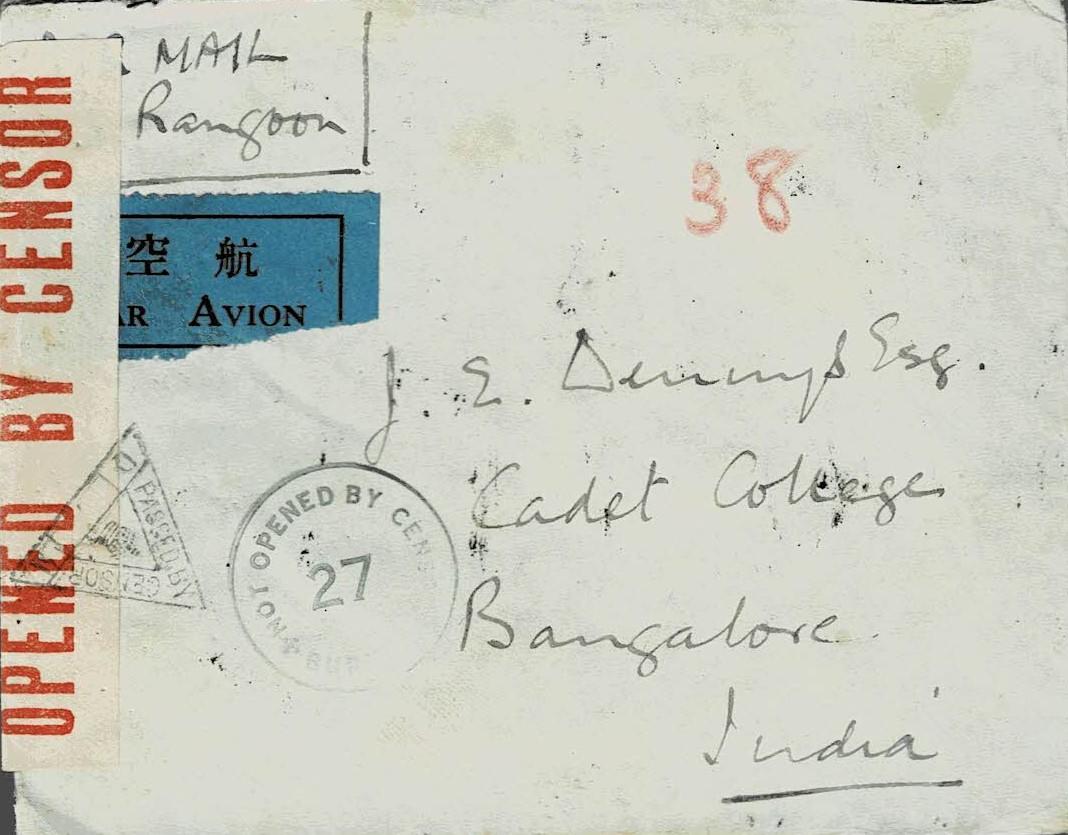 MAIL
Rangoon
38
空 航
AR AVION
J. E. Dennys Esq.
Cadet College
Bangalore
India
OPENED BY CENSOR
PASSED BY
CENSOR
NOT OPENED BY CENS
27